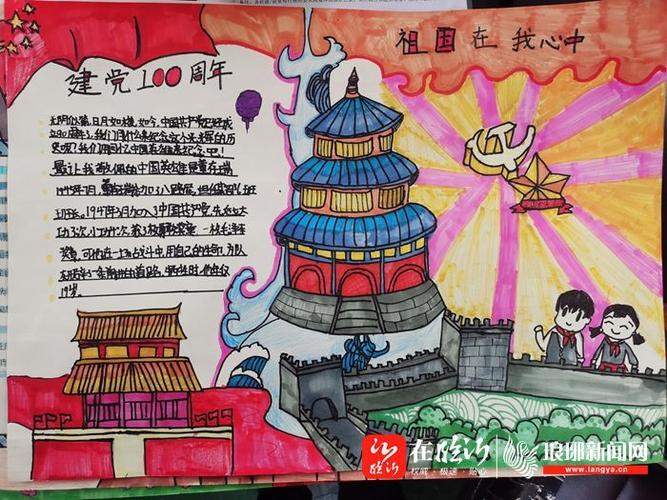 建党100周年
祖国在我心中
光阴似箭,日月如梭,如今,中国共产党已经成
立100周年了,我们用什么来纪念这个来之不易的历
史呢?我们用什么中国英雄来纪念吧!
最让我敬佩的中国英雄是董存瑞
1945年7月,董存瑞参加了八路军,担任某部六班
班长。1947年3月加入了中国共产党,先后立大
功3次、小功4次、获3枚勇敢奖章、一枚毛泽东
奖章,可他在一场战斗中,用自己的生命,为队
友开辟了一条前进的道路,牺牲时,他年仅
19岁。
在临沂
权威·极速·贴心
琅琊新闻网
www.langya.cn